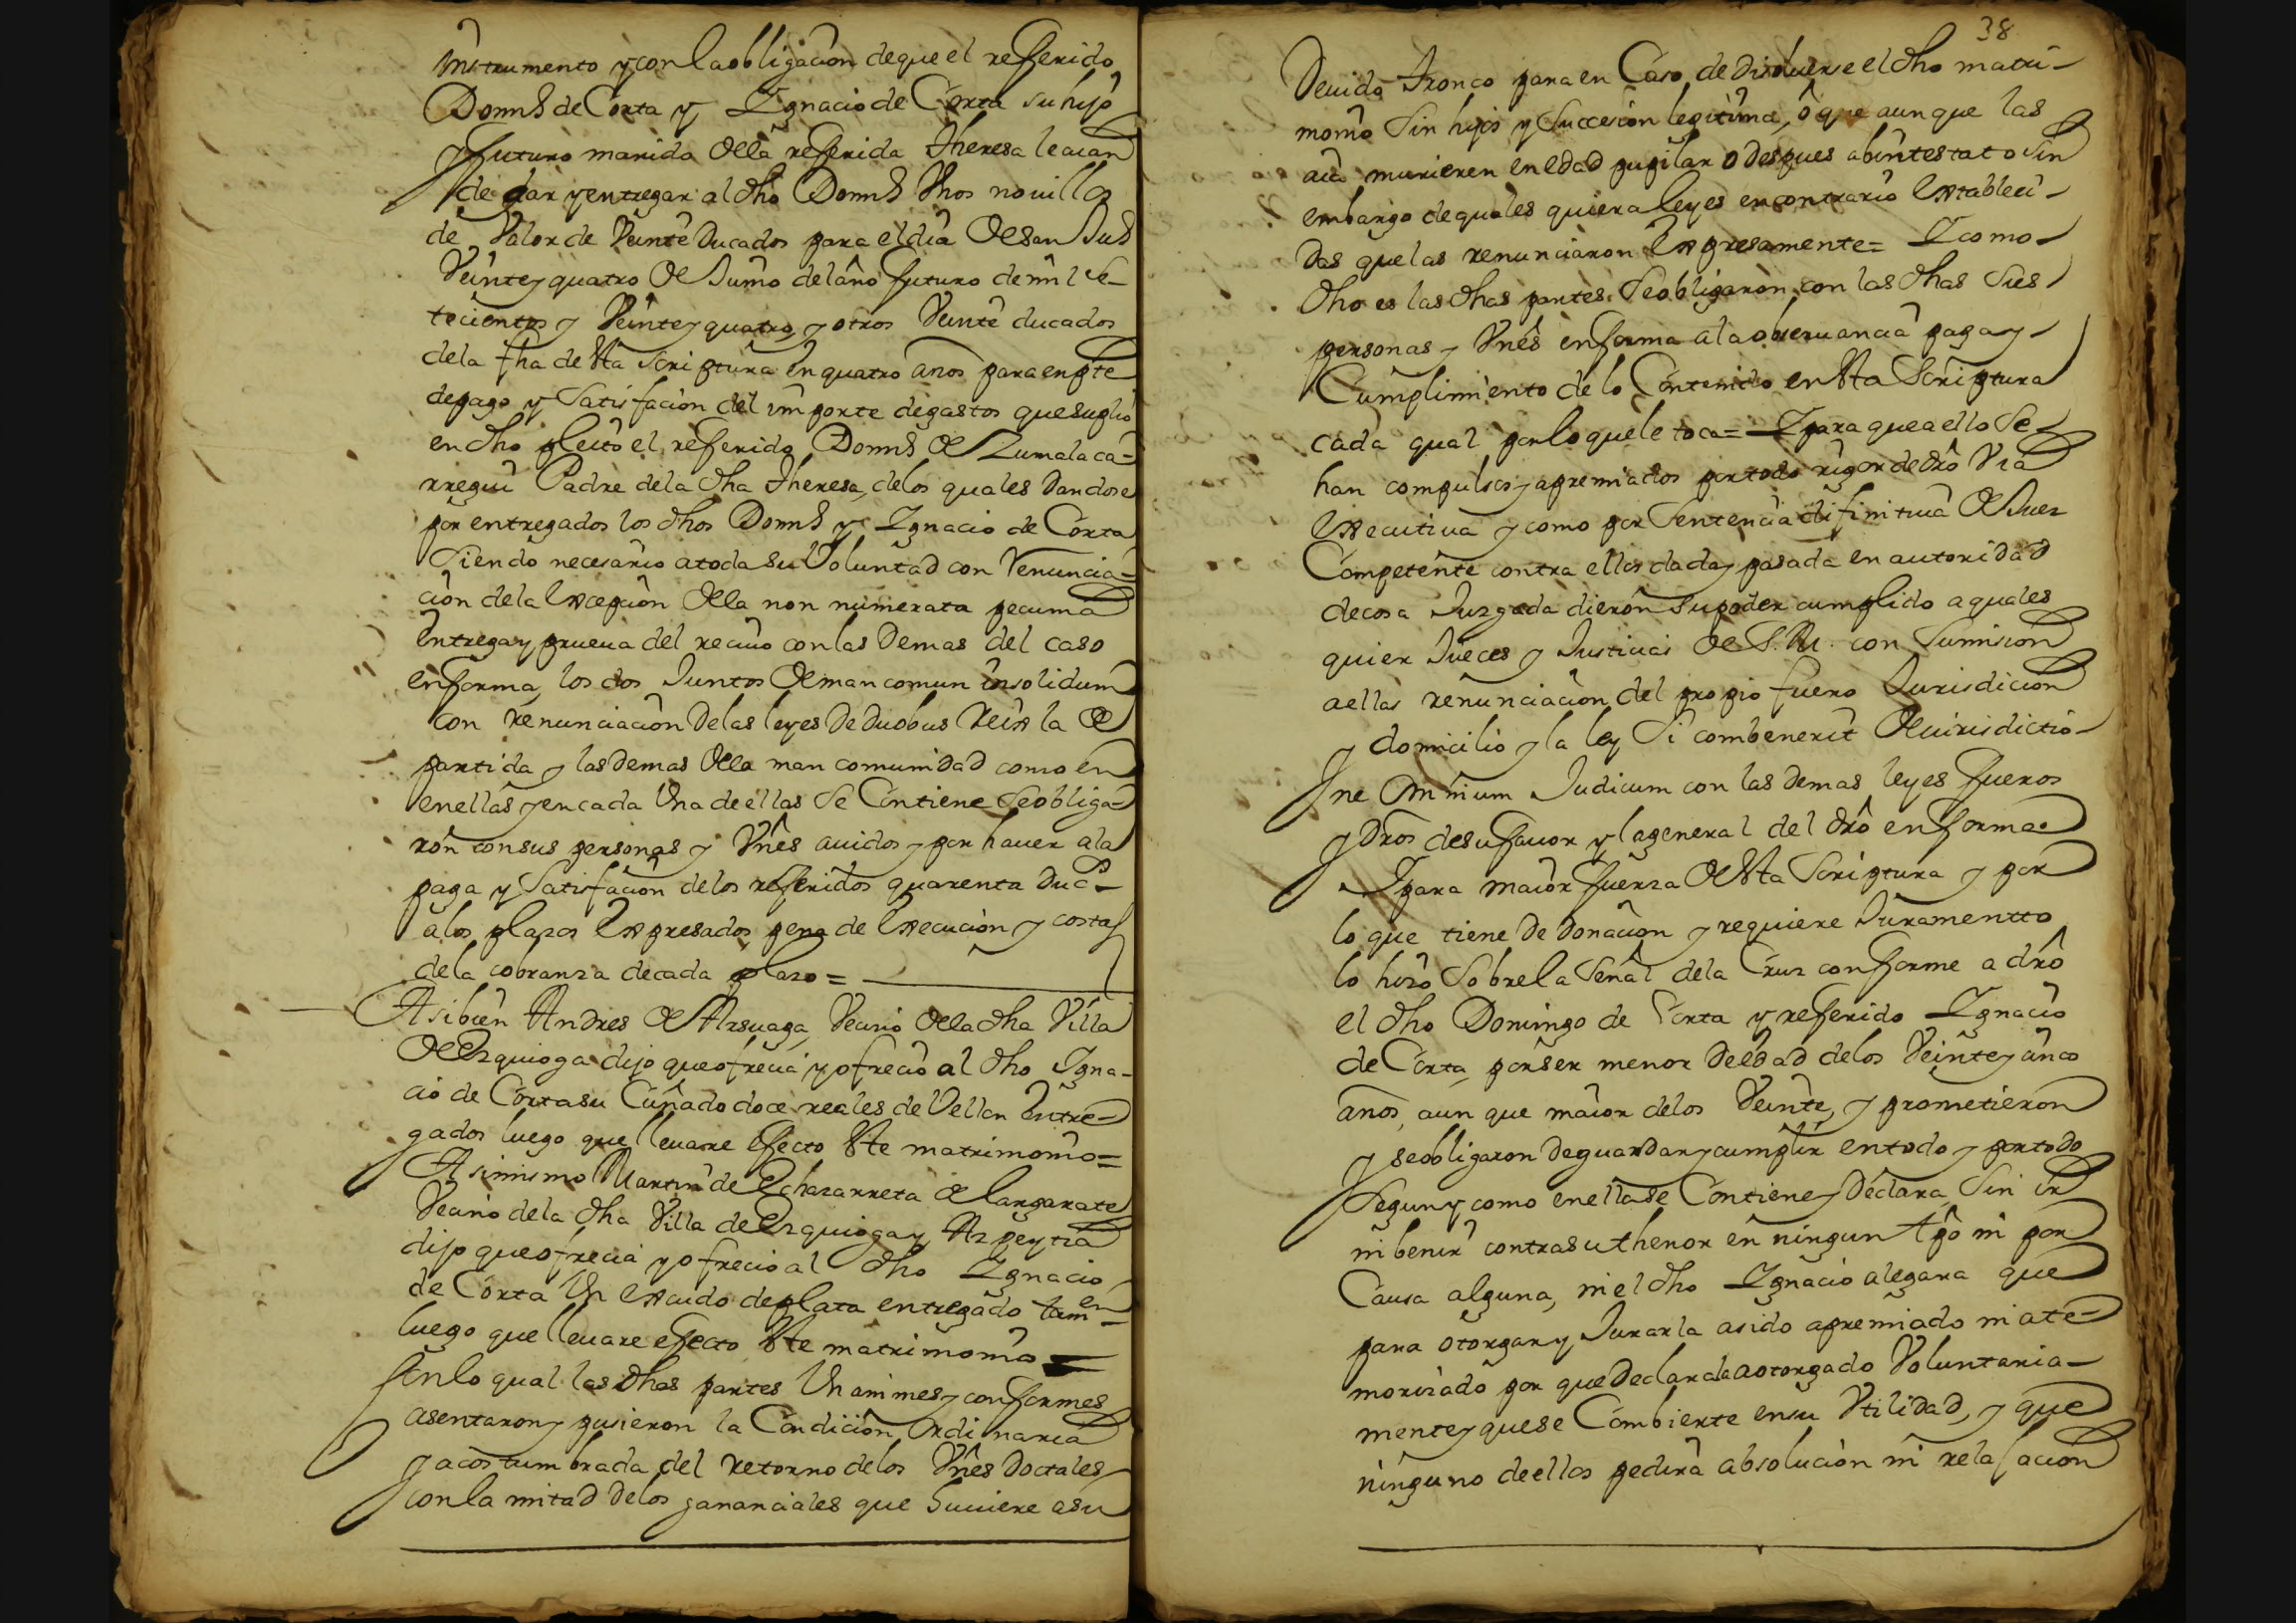 instrumento y con la obligacion de que el referido
Domns de Corta y Ygnacio de Corta su hijo
y futuro marido de la referida Theresa le aian
de dar y entregar al dho Domns Unos novillos
de Valor de Veinte Ducados para el dia de San Juº
Veinte y quatro de Junio del año futuro de mil Se-
tecientos y Veinte y quatro, y otros Veinte ducados
de la fha de esta Scriptura en quatro años para en pte
de pago y Satisfacion del importe de gastos que suplio
en dho pleito el referido Domns de Zumalaca-
rregui Padre de la dha Theresa, de los quales dandose
por entregados los dhos Domns y Ygnacio de Corta
Siendo necesario a toda su Voluntad con Renuncia-
cion de la excepcion de la non numerata pecunia
entrega y prueva del recivo con las Demas del caso
en forma, los dos Juntos de man comun insolidum
con Renunciacion de las leyes de duobus Reix la de
partida y las demas de la man comunidad como en
en ellas y en cada Una de ellas Se Contiene Se obliga-
ron con sus personas y Vnēs avidos y por haver a la
paga y Satisfacion de los referidos quarenta ducs-
a los plazos expresados pena de execucion y costas
de la cobranza de cada plazo =
Asi bien Andres de Arsuaga, Vecino de la dha Villa
de Ezquioga dijo que ofrecia y ofrecio al dho Ygna-
cio de Corta su Cuñado doce reales de Vellon entre-
gados luego que llevare efecto este matrimonio =
Asimismo Martin de Echazarreta de Largarate
Vecino de la dha Villa de Ezquioga y Azpeytia
dijo que ofrecia y ofrecio al dho Ygnacio
de Corta Un escudo de plata entregado tamen
luego que llevare efecto este matrimonio =
en lo qual las dhas partes Unanimes y conformes
asentaron y pusieron la Condicion Ordinaria
y acostumbrada del retorno de los Vnēs Doctales
con la mitad de los gananciales que huviere a su
38
Devido tronco para en Caso de disolverse el dho matri-
monio Sin hijos y Succesion legitima, o que aunque las
aia murieren en edad pupilar o despues abintestato sin
embargo de quales quiera leyes en contrario estableci-
das que las renunciaron expresamente = Y como
dho es las dhas partes Se obligaron con las dhas Sus
personas y Vnēs en forma a la observancia paga y
Cumplimiento de lo Contenido en esta Scriptura
cada qual por lo que le toca = Y para que a ello Se-
han compulsos y apremiados por todo rigor de dro Via
executiva y como por Sentencia difinitiva de Juez
Competente contra ellos dada y pasada en autoridad
de cosa Juzgada dieron su poder cumplido a quales
quier Jueces y Justicias de S.M. con Sumision
a ellas renunciacion del propio fuero Jurisdicion
y domicilio y la ley Si combenerit de iurisdictio-
ne Omnium Judicum con las demas leyes fueros
y dros de su favor y la general del dro en forma.
Y para maior fuerza de esta Scriptura y por
lo que tiene de donacion y requiere Juramentto
lo hizo Sobre la Señal de la Cruz conforme a dro
el dho Domingo de Corta y referido Ygnacio
de Corta, por ser menor de edad de los Veinte y cinco
años, aun que maior de los Veinte, y prometieron
y se obligaron de guardar y cumplir en todo y por todo
Segun y como en ella se Contiene y Declara, Sin ir
ni benir contra su thenor en ningun tpo ni por
Causa alguna, ni el dho Ygnacio alegara que
para otorgar y Jurarla a sido apremiado ni ate-
morizado por que Declara la a otorgado Voluntaria-
mente y que se Combierte en su Utilidad, y que
ninguno de ellos pedira absolucion ni relajacion